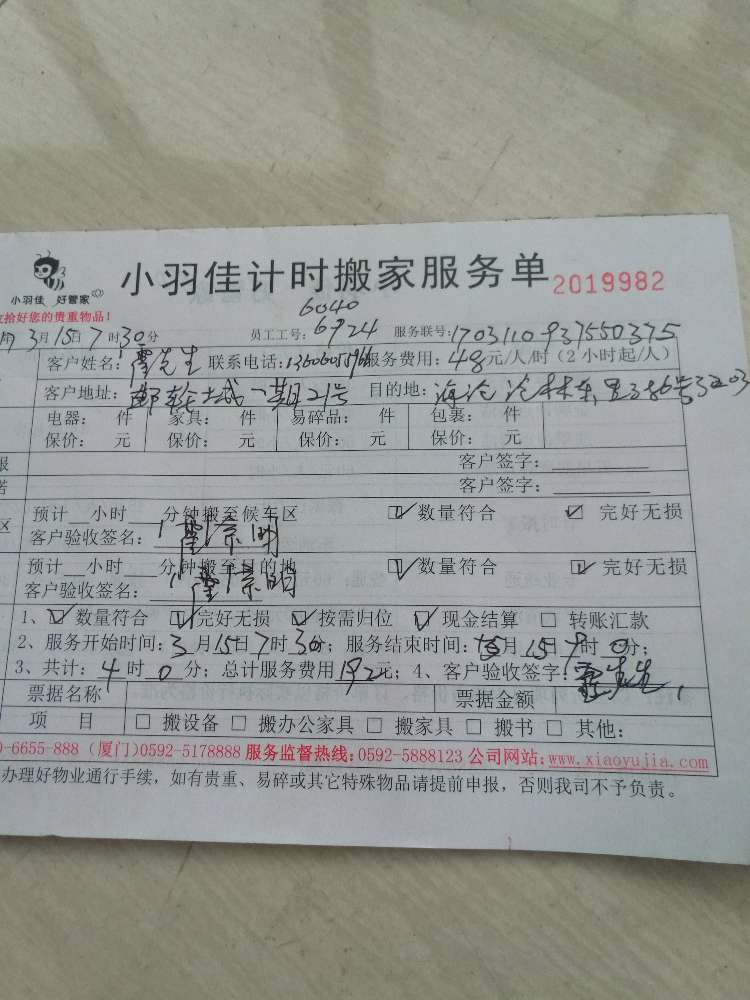 小羽佳 好管家
小羽佳计时搬家服务单 2019982
拾好您的贵重物品!
6040
月 3月15日7时30分 员工工号:6924 服务联号:1703110937550375
客户姓名: 先生 联系电话: 服务费用:48元/人/时(2小时起/人)
客户地址: 城一期21号 目的地:海沧
电器: 件 家具: 件 易碎品: 件 包裹: 件
保价: 元 保价: 元 保价: 元 保价: 元
客户签字:
客户签字:
预计 小时 分钟搬至候车区 ☑数量符合 ☑完好无损
客户验收签名:
预计 小时 分钟搬至目的地 ☑数量符合 ☑完好无损
客户验收签名:
1、☑数量符合 ☑完好无损 ☑按需归位 ☑现金结算 □ 转账汇款
2、服务开始时间:3月15日7时30分;服务结束时间: 月15日9时 分;
3、共计:4时0分;总计服务费用192元;4、客户验收签字: 先生
票据名称 票据金额
项 目 □ 搬设备 □ 搬办公家具 □ 搬家具 □ 搬书 □ 其他:
0-6655-888 (厦门)0592-5178888 服务监督热线:0592-5888123 公司网站:www.xiaoyujia.com
办理好物业通行手续,如有贵重、易碎或其它特殊物品请提前申报,否则我司不予负责。